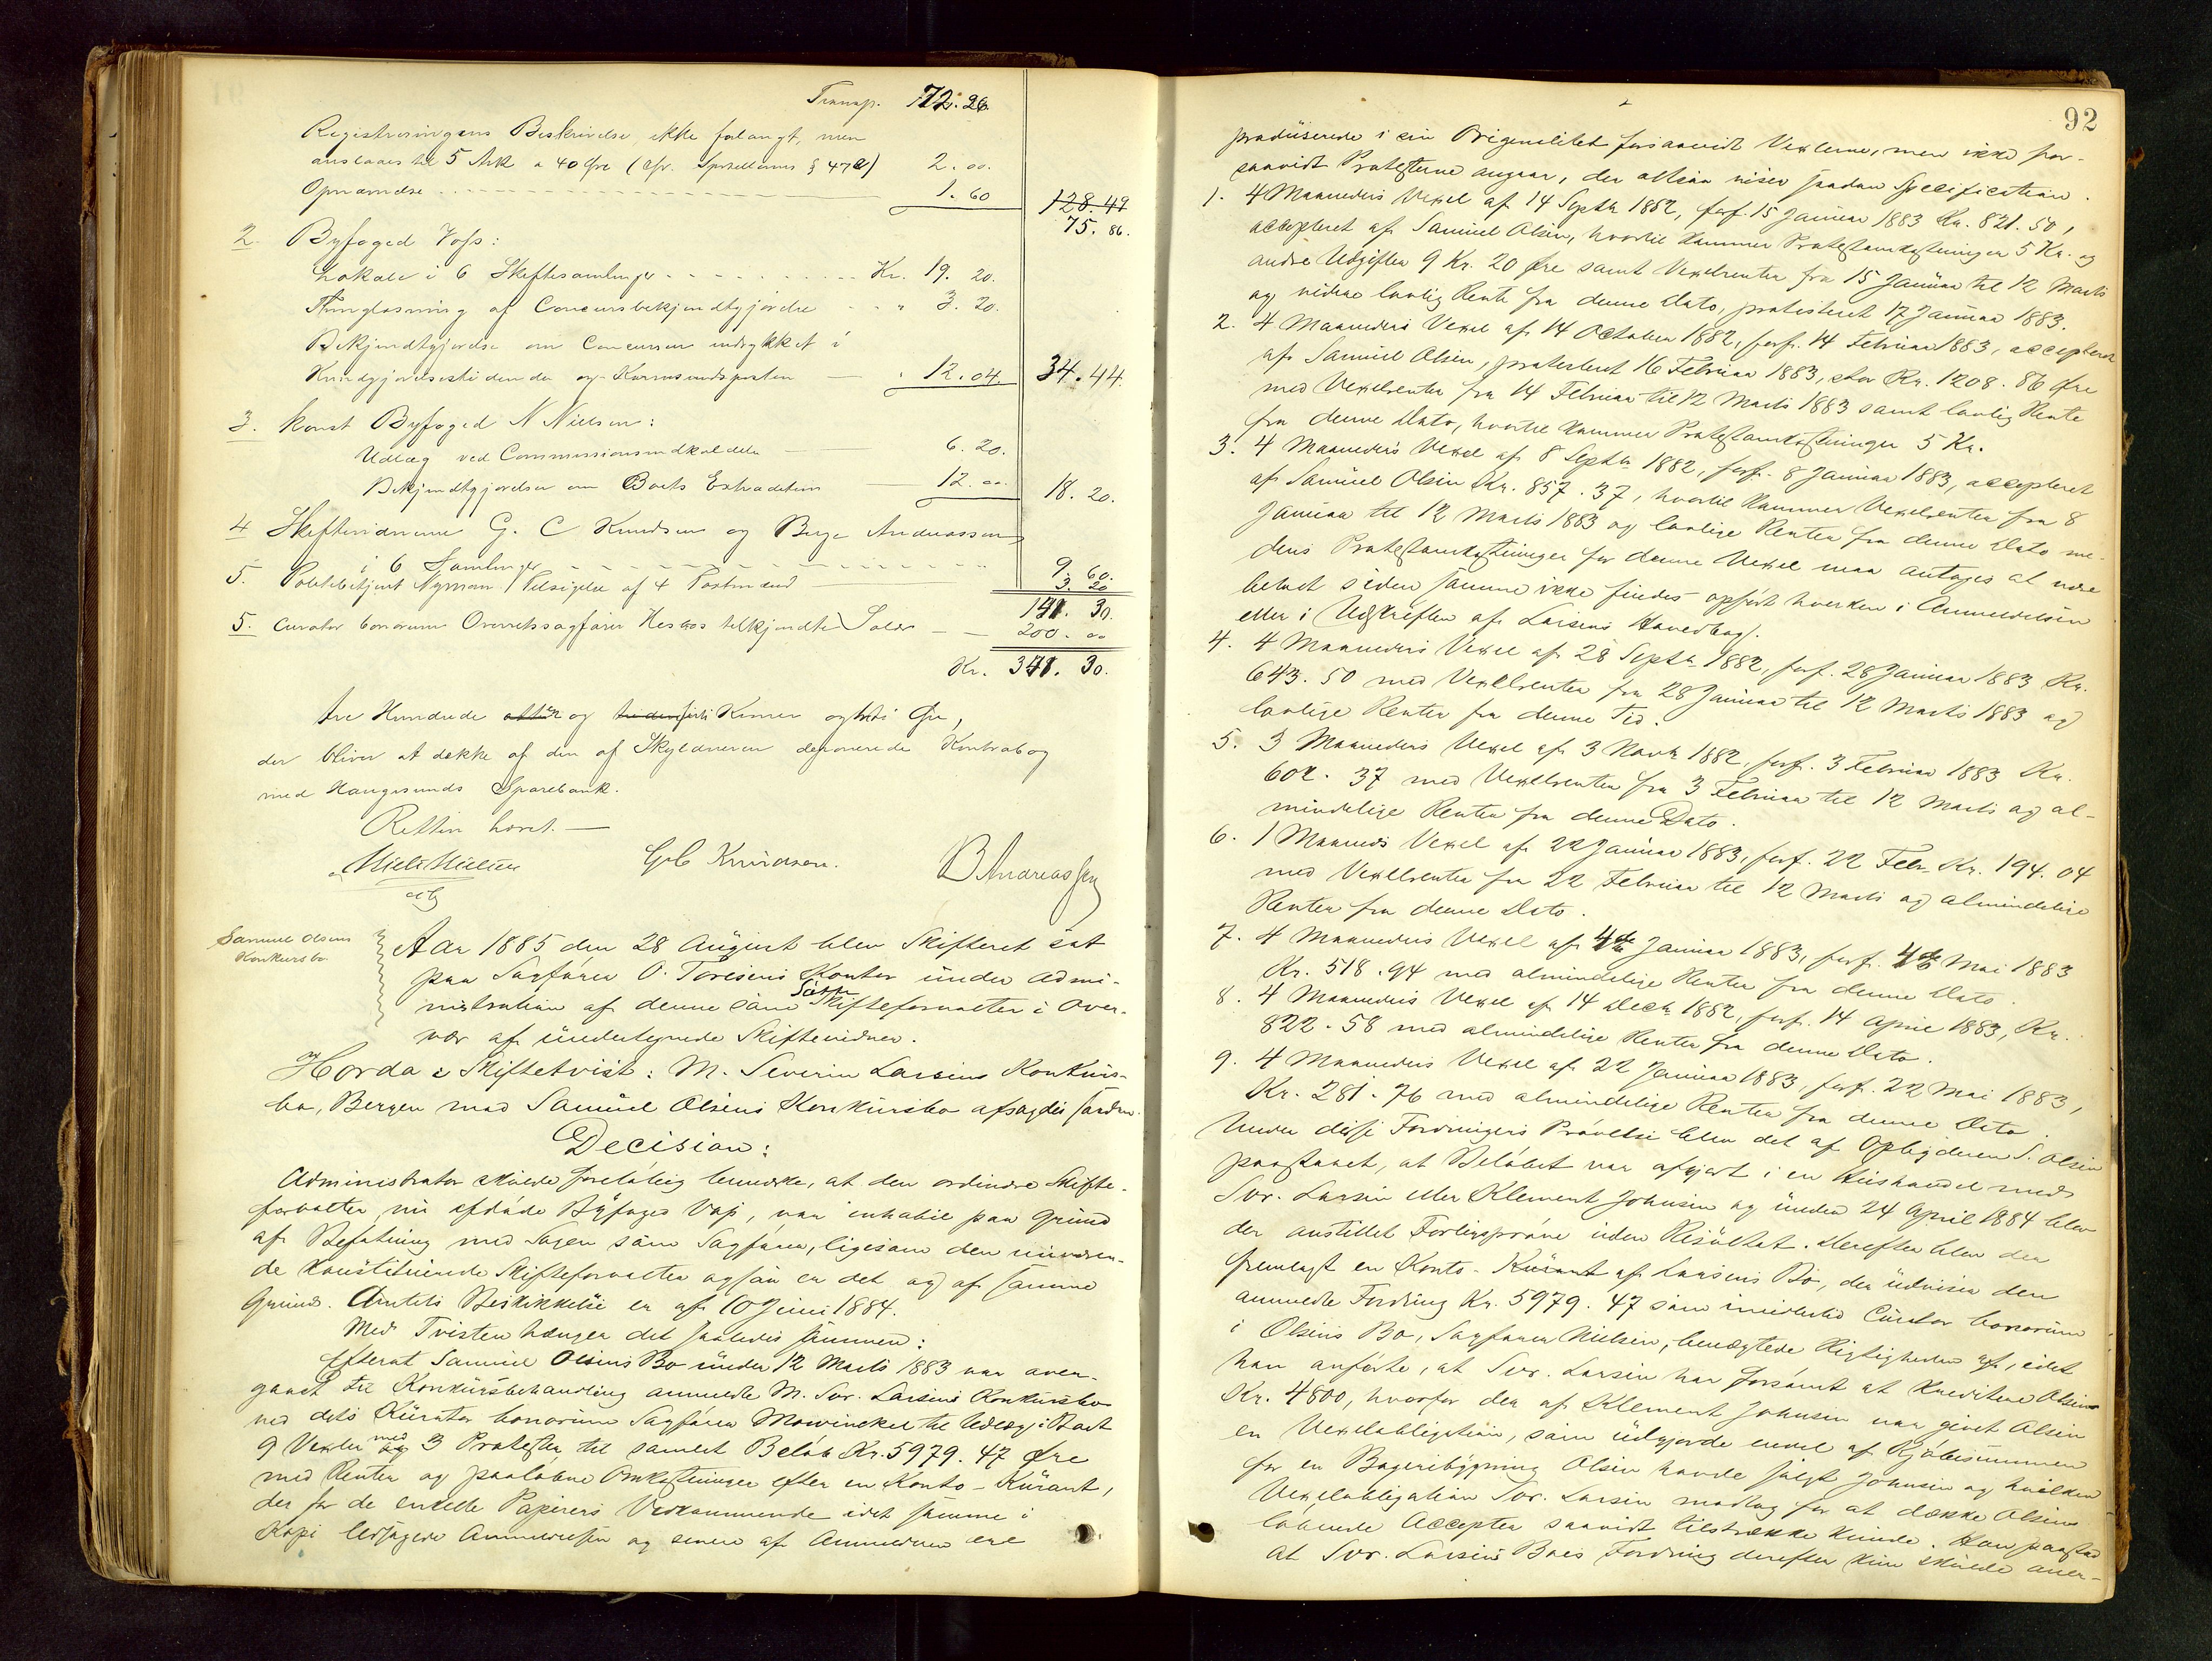 Transp. 72.26
Registreringens Beskrivelse, ikke forlangt, men
anslaaes til 5 Ark a 40 Øre (cfr. Sportellovens § 47 e) 2.00.
Opnævnelse 1.60 128.49
75.86.
2. Byfoged Voss:
Lokale i 6 Skiftesamlinger Kr. 19.20.
Thinglæsning af Concursbekjendtgjørelse " 3.20.
Bekjendtgjørelse om Concursen indrykket i
Kundgjørelsestidende og Karmsundsposten " 12.04. 34.44.
3. Konst Byfoged N Nielsen:
Udlæg ved Commissionsindkaldelse 6.20.
Bekjendtgjørelse om Boets Extradition 12.00. 18.20.
4 Skiftevidnerne G. C Knudsen og Berge Andreassen
i 6 Samlinger 9.60.
5. Politibetjent Nyman Tilsigelse af 4 Postmænd 3.20
141.30.
5. Curator bonorum Overretssagfører Heskos tilkjendte Salær 200.00
Kr. 341.30.
tre Hundrede og førti Kroner og tredi Øre,
der bliver at dække af den af Skyldneren deponerede Kontrabog
med Haugesunds Sparebank.
Retten hævet.
Niels Nielsen GC Knudsen. B Andreassen
cst
Samuel Olsens
Konkursbo
Aar 1885 den 28 August blev Skifteret sat
paa Sagfører O. Toresens Kontor under Admi-
nistration af denne som Sætte
Skifteforvalter i Over-
vær af undertegnede Skiftevidner.
Hvorda i Skiftetvist: M. Severin Larsens Konkurs-
bo, Bergen mod Samuel Olsens Konkursbo afsagdes saadan
Decision:
Administrator skulde foreløbig bemærke, at den ordinære Skifte-
forvalter nu afdøde Byfoged Voss, var inhabil paa Grund
af Befatning med Sagen som Sagfører, ligesom den nuværen-
de konstituerede Skifteforvalter ogsaa er det og af samme
Grund. Amtets Beskikkelse er af 10 Juni 1884.
Med Tvisten hænger det saaledes sammen:
Efterat Samuel Olsens Bo under 12 Marts 1883 var over-
gaaet til Konkursbehandling anmeldte M. Sev. Larsens Konkursbo
ved dets Kurator bonorum Sagfører Mowinckel til Udlæg i Boet
9 Vexler med og 3 Protester til samlet Beløb Kr. 5979.47 Øre
med Renter og paaløbne Omkostninger efter en Konto-Kurant,
der for de enkelte Papirers Vedkommende idet samme i
Kopi ledsagede Anmeldelsen og senere af Anmelderen ere
92
producerede i sin Originalitet forsaavidt Vexlerne, men ikke for-
saavidt Protesterne angaar, der altsaa viser saadan Specifikation.
1. 4 Maaneders Vexel af 14 Septbr 1882, forf. 15 Januar 1883 Kr. 821.50,
accepteret af Samuel Olsen, hvortil kommer Protestomkostninger 5 Kr. og
andre Udgifter 9 Kr. 20 Øre samt Vexelrenter fra 15 Januar til 12 Marts
og videre lovlig Rente fra denne Dato, protesteret 17 Januar 1883.
2. 4 Maaneders Vexel af 14 October 1882, forf. 14 Februar 1883, accepteret
af Samuel Olsen, protesteret 16 Februar 1883, stor Kr. 1208.86 Øre
med Vexelrenter fra 14 Februar til 12 Marts 1883 samt lovlig Rente
fra denne Dato, hvortil kommer Protestomkostninger 5 Kr.
3. 4 Maaneders Vexel af 8 Septbr 1882, forf. 8 Januar 1883, accepteret
af Samuel Olsen Kr. 857.37, hvortil kommer Vexelrenter fra 8
Januar til 12 Marts 1883 og lovlige Renter fra denne Dato me-
dens Protestomkostninger for denne Vexel maa antages at være
betalt siden samme ikke findes opført hverken i Anmeldelsen
eller i Udskriften af Larsens Hovedbog.
4. 4 Maaneders Vexel af 28 Septbr 1882, forf. 28 Januar 1883 Kr.
643.50 med Vexelrenter fra 28 Januar til 12 Marts 1883 og
lovlige Renter fra denne Tid.
5. 3 Maaneders Vexel af 3 Novbr 1882, forf. 3 Februar 1883 Kr.
602.37 med Vexelrenter fra 3 Februar til 12 Marts og al-
mindelige Renter fra denne Dato.
6. 1 Maaneds Vexel af 22 Januar 1883, forf. 22 Febr. Kr. 194.04
med Vexelrenter fra 22 Februar til 12 Marts og almindelige
Renter fra denne Dato.
7. 4 Maaneders Vexel af 4de Januar 1883, forf. 4de Mai 1883
Kr. 518.94 med almindelige Renter fra denne Dato.
8. 4 Maaneders Vexel af 14 Decbr 1882, forf. 14 April 1883, Kr.
822.58 med almindelige Renter fra denne Dato.
9. 4 Maaneders Vexel af 22 Januar 1883, forf. 22 Mai 1883,
Kr. 281.76 med almindelige Renter fra denne Dato.
Under disse Fordringers Prøvelse blev det af Opbyderen S. Olsen
paastaaet, at Beløbet var afgjort i en Hushandel med
Sev. Larsen eller Klement Johnsen og under 24 April 1884 blev
der anstillet Forligsprøve uden Resultat. Derefter blev der
fremlagt en Konto-Kurant af Larsens Bo, der udviser den
anmeldte Fordring Kr. 5979.47 som imidlertid Curator bonorum
i Olsens Bo, Sagfører Nielsen, benægtede Rigtigheden af, idet
han anførte, at Sev. Larsen har forsømt at kreditere Olsen
Kr. 4800, hvorfor der af Klement Johnsen var givet Olsen
en Vexelobligation, som udgjorde endel af Kjøbesummen
for en Bageribygning Olsen havde solgt Johnsen og hvilken
Vexelobligation Sev. Larsen modtog for at dække Olsens
løbende Accepter saavidt tilstrække kunde. Han paastod
at Sev. Larsens Boes Fordring derefter kun skulde aner-